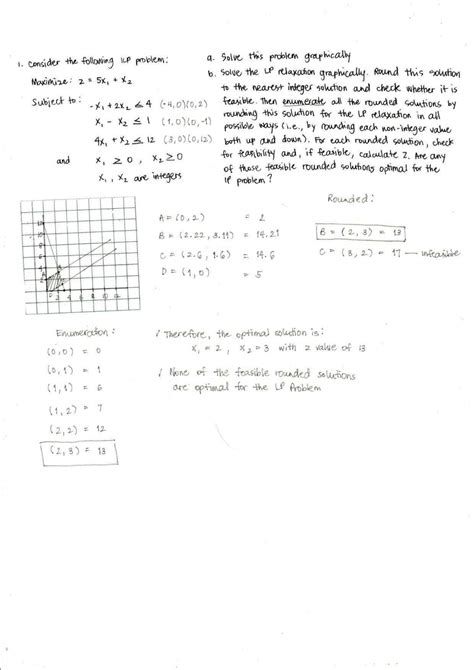 1. Consider the following ILP problem:
Maximize: Z = 5x₁ + x₂
Subject to: -x₁ + 2x₂ ≤ 4 (-4,0)(0,2)
x₁ - x₂ ≤ 1 (1,0)(0,-1)
4x₁ + x₂ ≤ 12 (3,0)(0,12)
and x₁ ≥ 0, x₂ ≥ 0
x₁, x₂ are integers
a. Solve this problem graphically
b. Solve the LP relaxation graphically. Round this solution
to the nearest integer solution and check whether it is
feasible. Then enumerate all the rounded solutions by
rounding this solution for the LP relaxation in all
possible ways (i.e., by rounding each non-integer value
both up and down). For each rounded solution, check
for feasibility and, if feasible, calculate Z. Are any
of those feasible rounded solutions optimal for the
IP problem?
A = (0,2) = 2
B = (2.22, 3.11) = 14.21
C = (2.6, 1.6) = 14.6
D = (1,0) = 5
Rounded:
B = (2,3) = 13
C = (3,2) = 17 — infeasible
Enumeration:
(0,0) = 0
(0,1) = 1
(1,1) = 6
(1,2) = 7
(2,2) = 12
(2,3) = 13
Therefore, the optimal solution is:
x₁ = 2, x₂ = 3 with z value of 13
None of the feasible rounded solutions
are optimal for the LP Problem